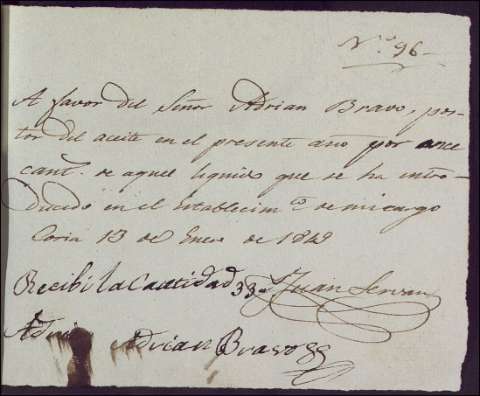 N.º 96
A favor del Señor Adrian Bravo, por-
tor del aceite en el presente año por once
cant.s de aquel liquido que se ha intro-
ducido en el Establecim.to de mi cargo
Coria 13 de Enero de 1849
Recibi la Cantidad 33 Juan Servan
Adri Adrian Bravo